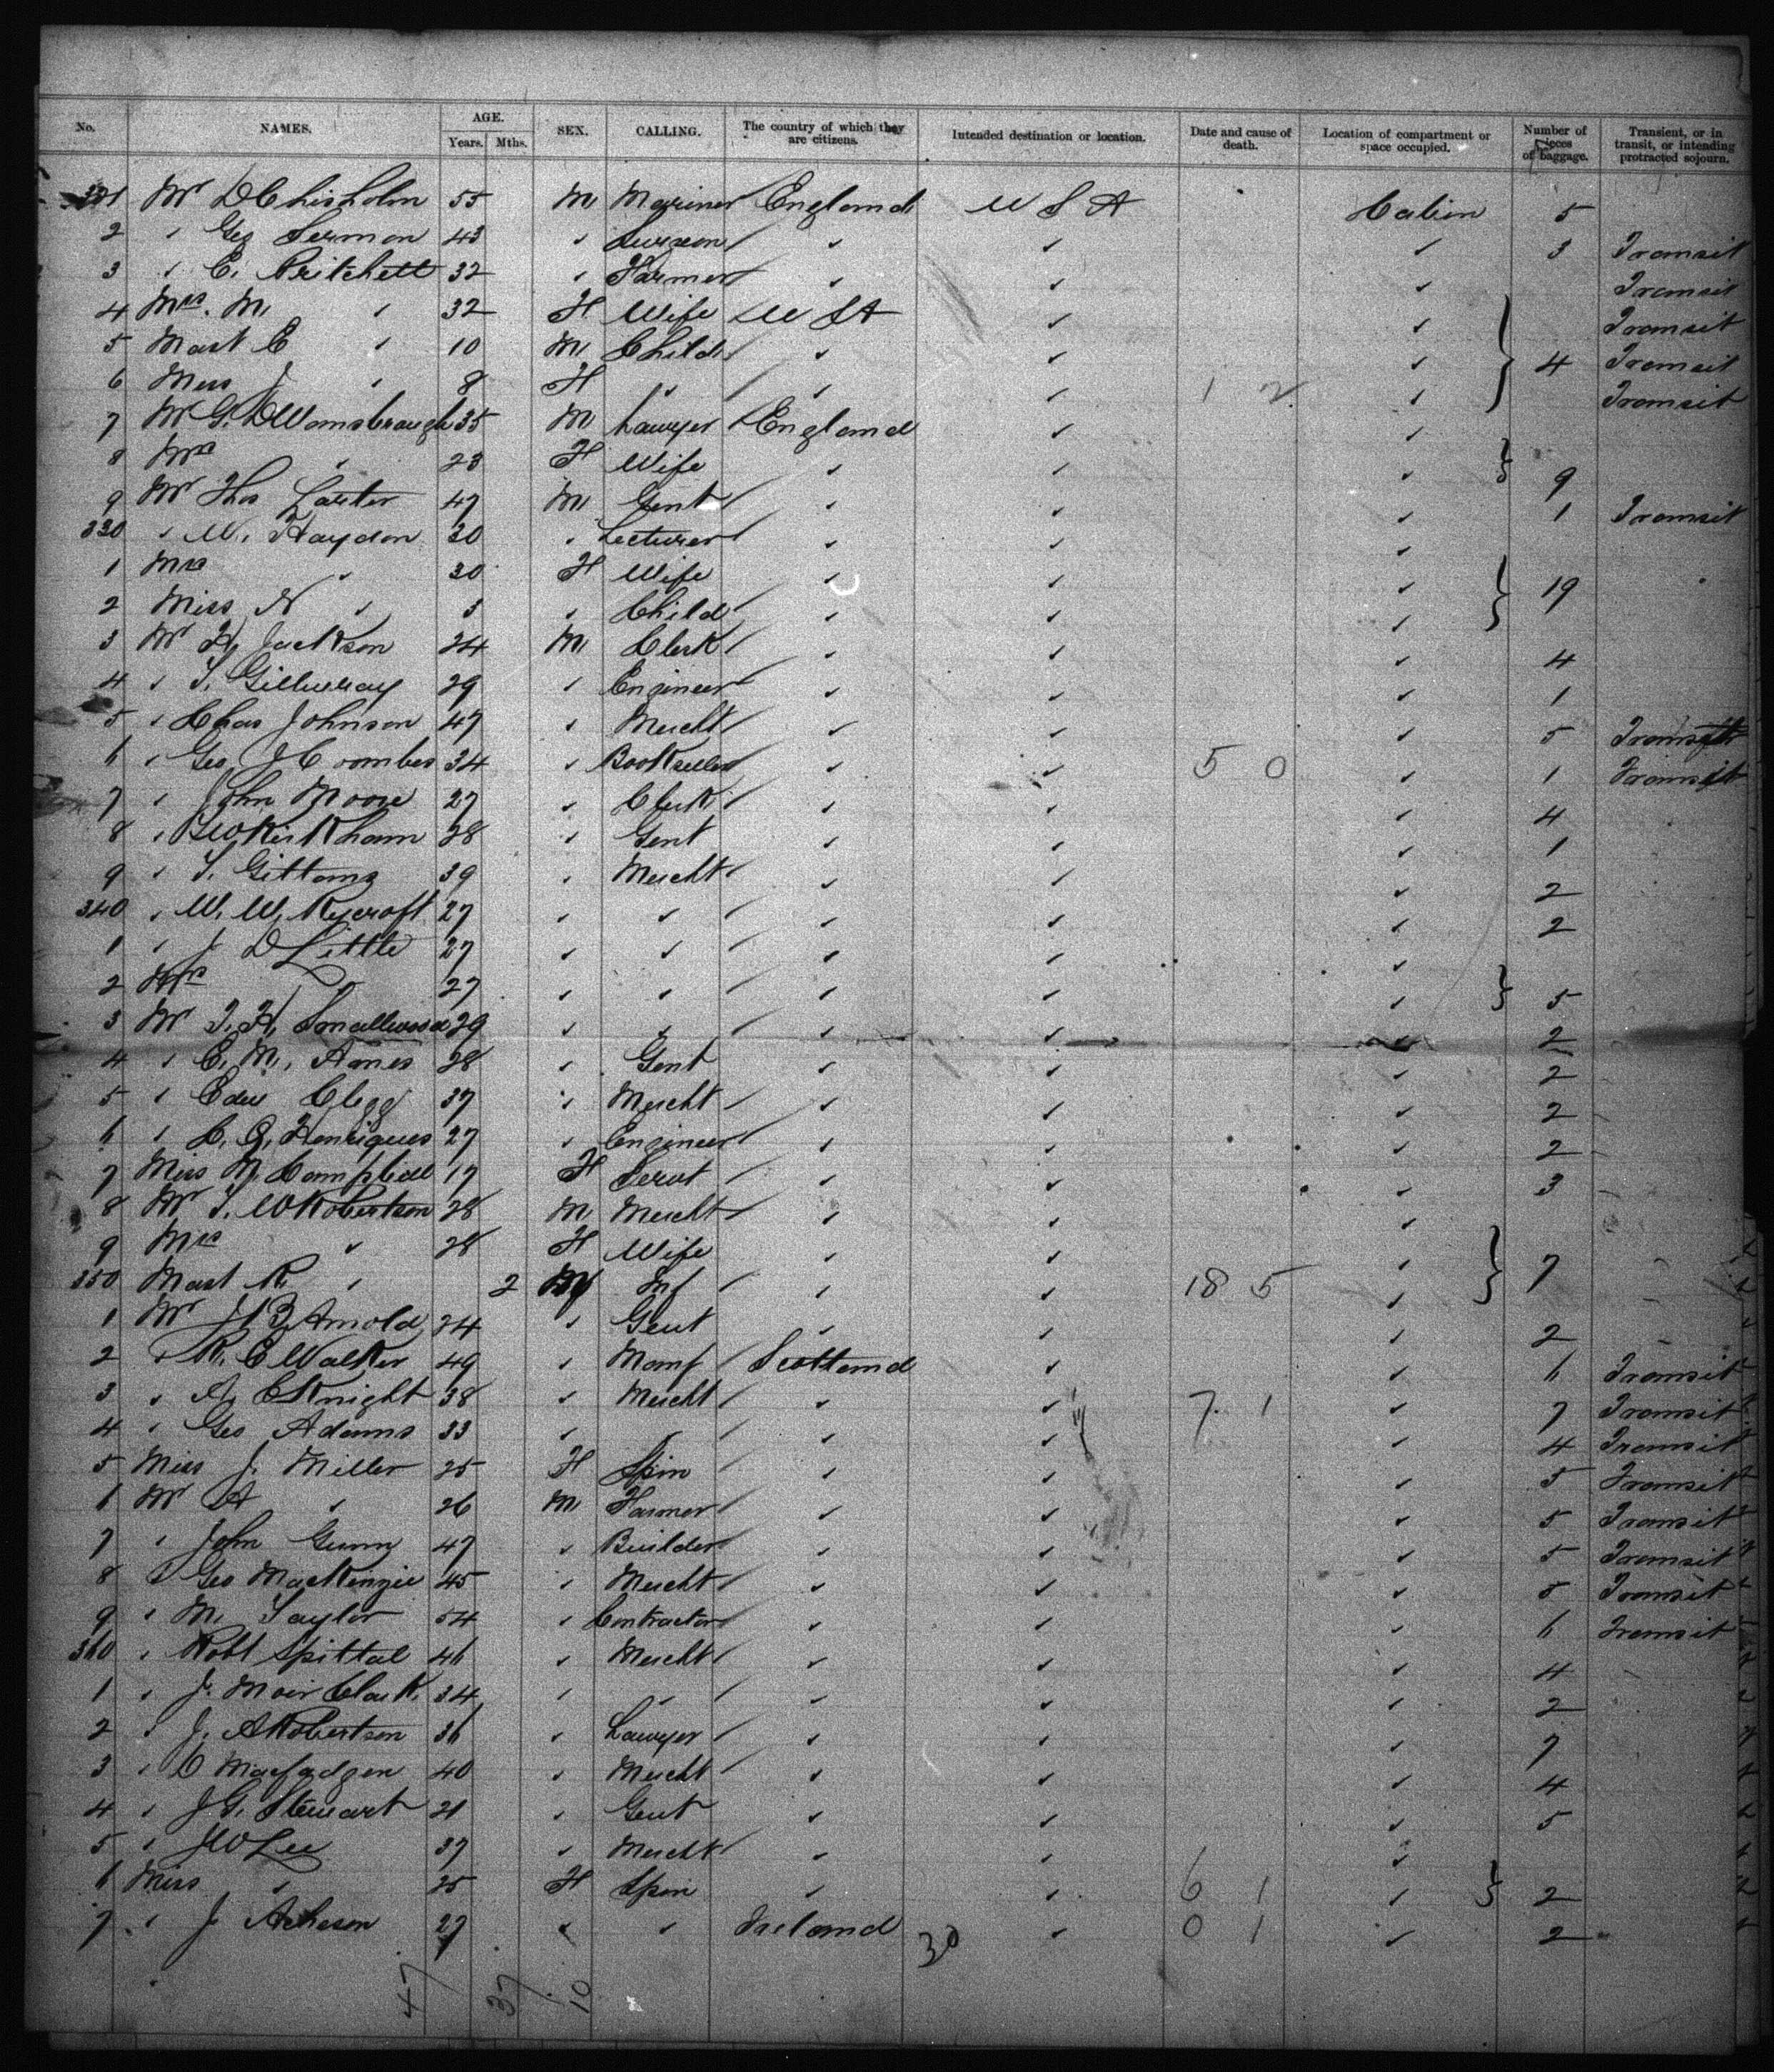 No. NAMES. AGE. Years. Mths. SEX. CALLING. The country of which they are citizens. Intended destination or location. Date and cause of death. Location of compartment or space occupied. Number of pieces of baggage. Transient, or in transit, or intending protracted sojourn.
321 Mr D Chisholm 55 M Mariner England U S A Cabin 5
2 " Geo Sermon 43 " Surgeon " " " 3 Transit
3 " E. Pritchett 32 " Farmer " " " Transit
4 Mrs. M. " 32 F Wife U S A " " Transit
5 Mast E " 10 M Child " " " 4 Transit
6 Miss J " 8 F " " " 1 2 " Transit
7 Mr G. D Wansbrough 35 M Lawyer England " "
8 Mrs " 23 F Wife " " " 9
9 Mr Thos Carter 47 M Gent " " " 1 Transit
330 " W. Haydon 30 " Lecturer " " "
1 Mrs " 30 F Wife " " " 19
2 Miss N " 3 " Child " " "
3 Mr H. Jackson 24 M Clerk " " " 4
4 " T. Gilluray 29 " Engineer " " " 1
5 " Chas Johnson 47 " Mercht " " " 5 Transit
6 " Geo J Coombes 34 " Bookseller " " 5 0 " 1 Transit
7 " John Moore 27 " Clerk " " " 4
8 " Geo Kirkham 28 " Gent " " " 1
9 " T. Gittens 39 " Mercht " " " 2
340 " W. W. Rycroft 27 " " " " " 2
1 " J D Little 27 " " " " "
2 Mrs 27 " " " " " 5
3 Mr T. H. Smallwood 29 " " " " " 2
4 " E. M. Ames 28 " Gent " " " 2
5 " Edw Clegg 37 " Mercht " " " 2
6 " C. Q. Henriques 27 " Engineer " " " 2
7 Miss M. Campbell 17 F Servt " " " 3
8 Mr T. W Robertson 28 M Mercht " " "
9 Mrs " 28 F Wife " " " 7
350 Mast R. " 2 M Inf " " 18 5 "
1 Mr J B Arnold 24 " Gent " " " 2
2 " R. C Walker 49 " Manf Scotland " " 6 Transit
3 " A. C Knight 38 " Mercht " " 7 1 " 7 Transit
4 " Geo Adams 33 " " " " " 4 Transit
5 Miss J. Miller 25 F Spin " " " 5 Transit
6 Mr A " 26 M Farmer " " " 5 Transit
7 " John Gunn 47 " Builder " " " 5 Transit
8 " Geo MacKenzie 45 " Mercht " " " 5 Transit
9 " M. Taylor 54 " Contractor " " " 6 Transit
360 " Robt Spittal 46 " Mercht " " " 4
1 " J. Moir Clark 34 " " " " " 2
2 " J. A Robertson 36 " Lawyer " " " 7
3 " D Macfadzen 40 " Mercht " " " 4
4 " J G. Stewart 21 " Gent " " " 5
5 " J W Lee 37 " Mercht " " "
6 Miss " 25 F Spin " " 6 1 " 2
7 " J Acheson 27 " " Ireland 30 " 0 1 " 2
47 37 10